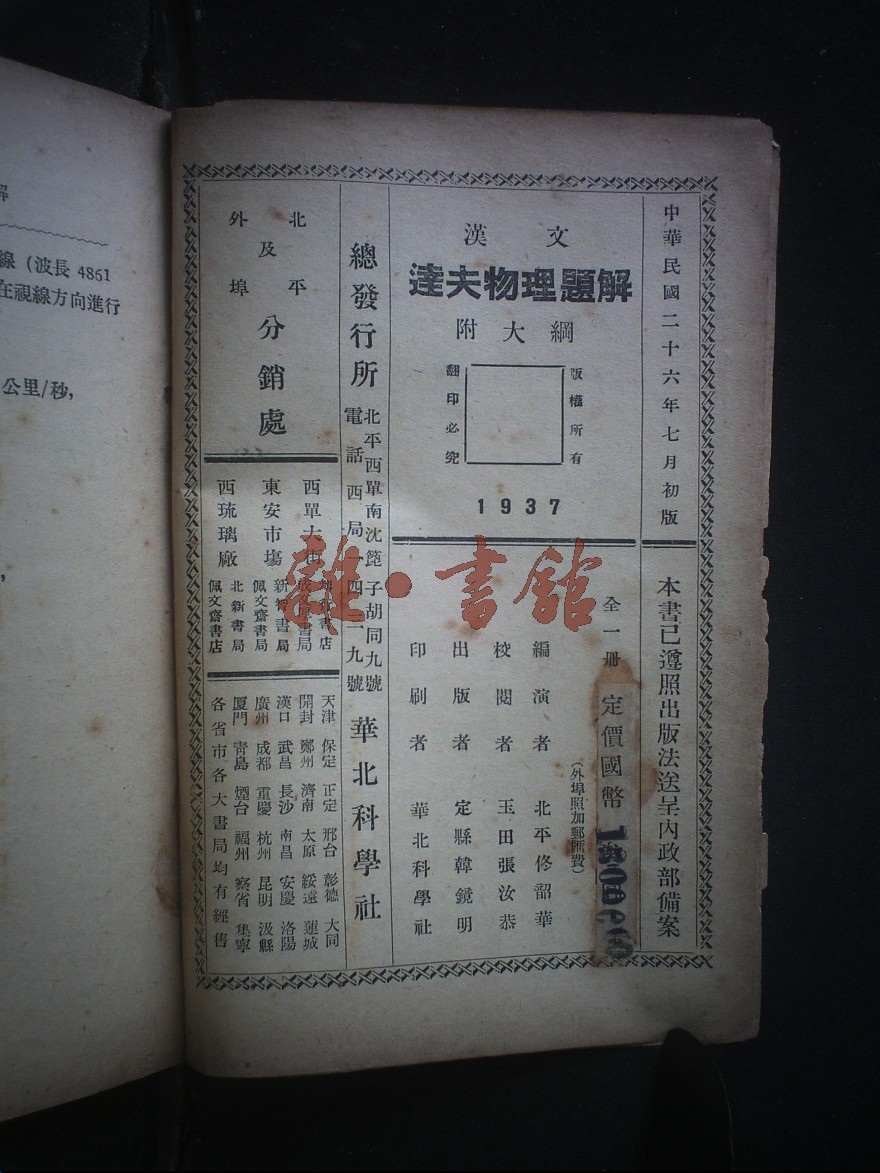 解
線 (波長 4861
在視線方向進行
公里/秒,
中華民國二十六年七月初版
本書已遵照出版法送呈內政部備案
漢文
達夫物理題解
附大綱
版權所有
翻印必究
1937
全一册
定價國幣
(外埠照加郵匯費)
編演者 北平修韶華
校閱者 玉田張汝恭
出版者 定縣韓鏡明
印刷者 華北科學社
總發行所
北平西單南沈篦子胡同九號
電話西局一四二九號
華北科學社
北平
及
外埠
分銷處
西單大街
東安市場
新智書局
佩文齋書局
西琉璃廠
北新書局
佩文齋書店
天津 保定 正定 邢台 彰德 大同
開封 鄭州 濟南 太原 綏遠 蓮城
漢口 武昌 長沙 南昌 安慶 洛陽
廣州 成都 重慶 杭州 昆明 汲縣
厦門 靑島 煙台 福州 察省 集寧
各省市各大書局均有經售
雜·書館